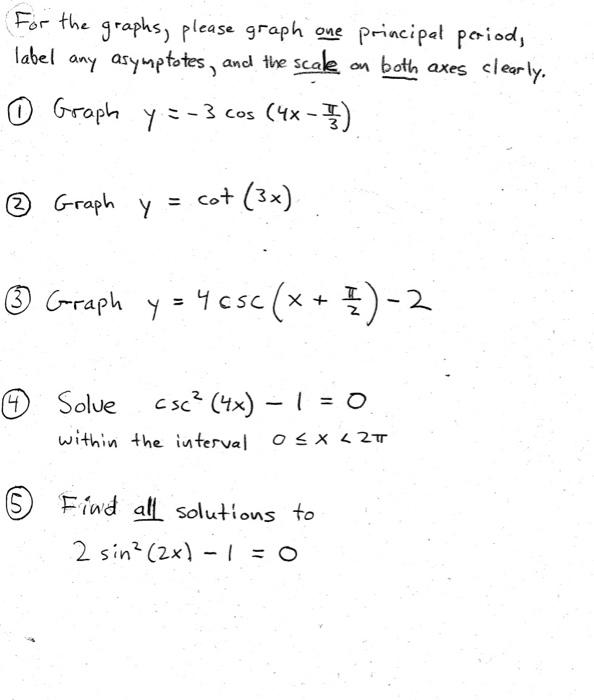 For the graphs, please graph one principal period,
label any asymptotes, and the scale on both axes clearly.
① Graph y = -3 cos (4x - π/3)
② Graph y = cot (3x)
③ Graph y = 4 csc (x + π/2) - 2
④ Solve csc² (4x) - 1 = 0
within the interval 0 ≤ x < 2π
⑤ Find all solutions to
2 sin² (2x) - 1 = 0